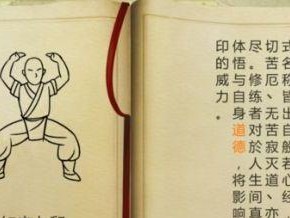 式名称、皆出般若心经
切苦厄、无苦寂灭道、亦
尽。修练者对於人生间真
体悟与自身道德，将影响
印的威力。